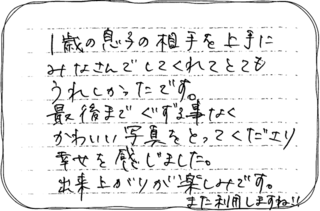 1歳の息子の相手を上手に
みなさんでしてくれてとても
うれしかったです。
最後までぐずる事なく
かわいい写真をとってくださり
幸せを感じました。
出来上がりが楽しみです。
また利用しますね!!